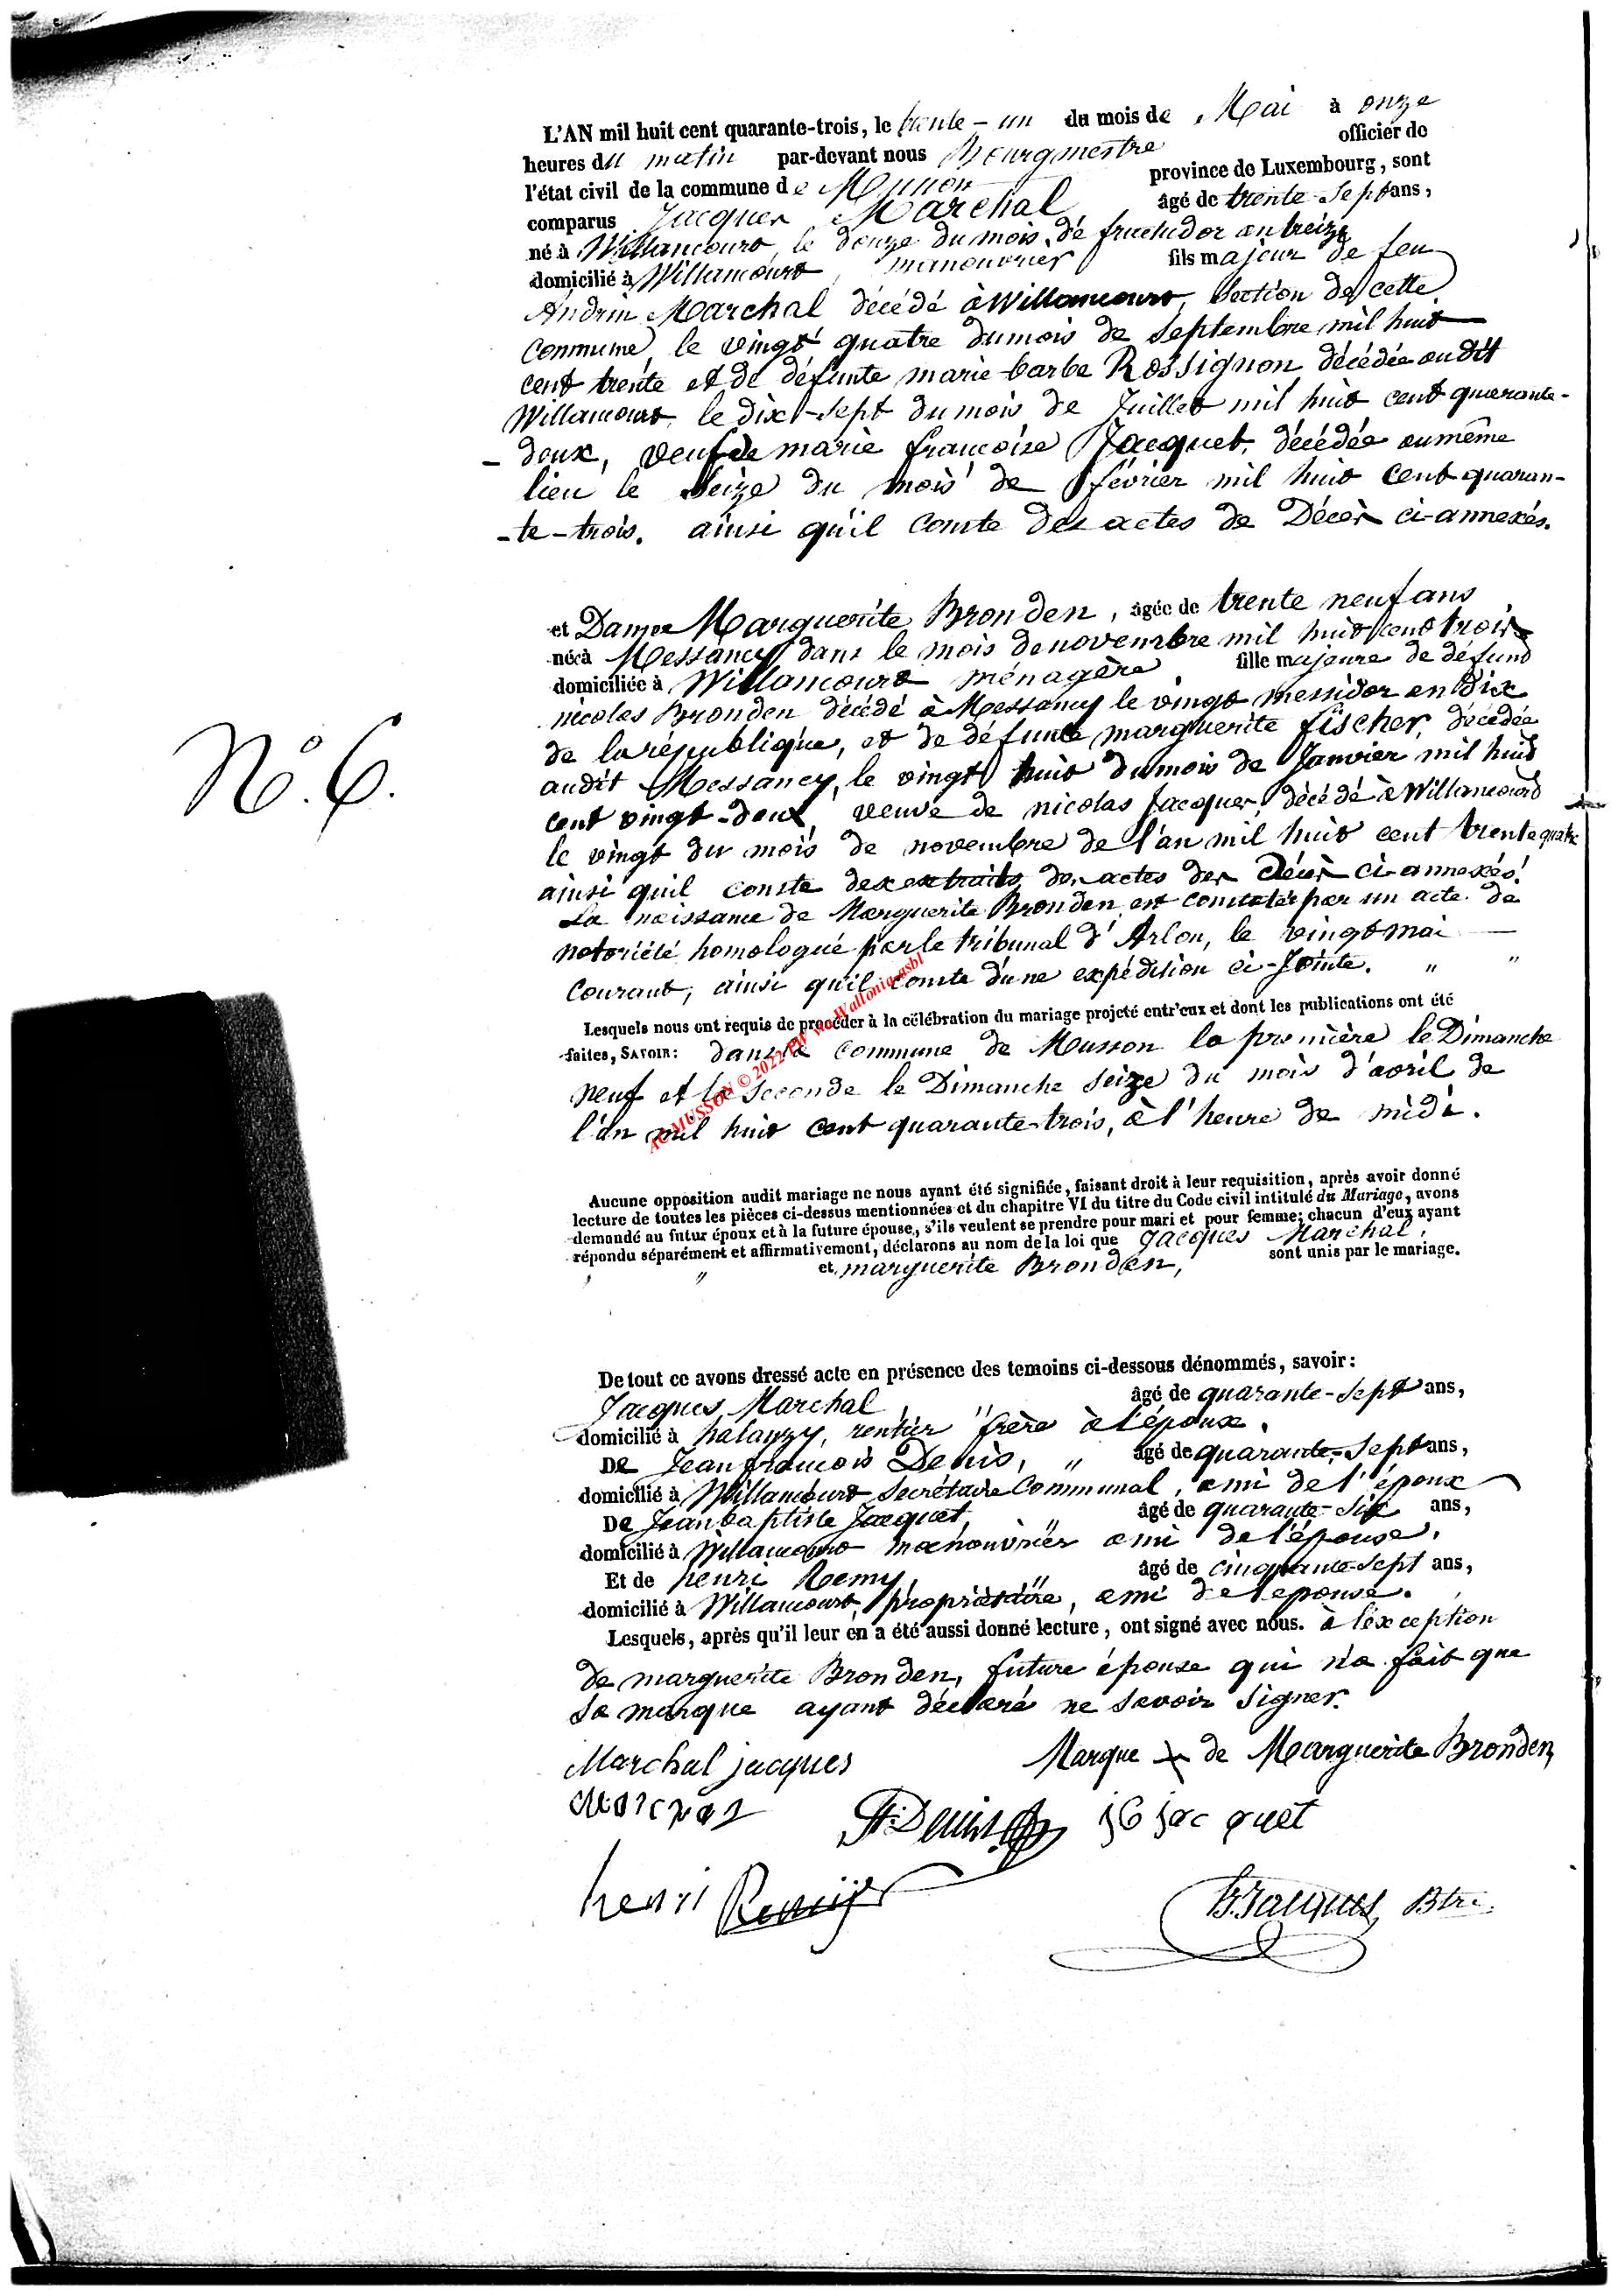 L'AN mil huit cent quarante-trois, le trente-un du mois de Mai à onze
heures du matin par-devant nous Bourgmestre officier de
l'état civil de la commune de Musson province de Luxembourg, sont
comparus Jacques Marchal âgé de trente-sept ans,
né à Willancourt, le douze du mois de fructidor an treize
domicilié à Willancourt, manouvrier fils majeur de feu
Andrin Marchal décédé à Willancourt, section de cette
commune, le vingt quatre du mois de septembre mil huit
cent trente et de défunte marie-barbe Rossignon décédée audit
Willancourt le dix-sept du mois de Juillet mil huit cent quarante-
-deux, veuf de marie françoise Jacquet, décédée au même
lieu le seize du mois de février mil huit cent quaran-
-te-trois. ainsi qu'il conste des actes de Décès ci-annexés.
N° 6.
et Dame Marguerite Bronden, âgée de trente neuf ans
née à Messancy dans le mois de novembre mil huit cent trois
domiciliée à Willancourt ménagère fille majeure de défunt
nicolas Bronden décédé à Messancy le vingt messidor an dix
de la république, et de défunte marguerite fischer, décédée
audit Messancy, le vingt huit du mois de Janvier mil huit
cent vingt-deux, veuve de nicolas Jacques, décédé à Willancourt
le vingt du mois de novembre de l'an mil huit cent trente quatre
ainsi quil conste des extraits des actes des décès ci-annexés.
La naissance de Marguerite Bronden est constatée par un acte de
notoriété homologué par le tribunal d'Arlon, le vingt mai
courant, ainsi qu'il conste d'une expédition ci-Jointe. " "
Lesquels nous ont requis de procéder à la célébration du mariage projeté entr'eux et dont les publications ont été
faites, SAVOIR: dans la commune de Musson la première le Dimanche
neuf et la seconde le Dimanche seize du mois d'avril de
l'an mil huit cent quarante-trois, à l'heure de midi.
AC MUSSON © 2022 GW wc Wallonia-asbl
Aucune opposition audit mariage ne nous ayant été signifiée, faisant droit à leur requisition, après avoir donné
lecture de toutes les pièces ci-dessus mentionnées et du chapitre VI du titre du Code civil intitulé du Mariage, avons
demandé au futur époux et à la future épouse, s'ils veulent se prendre pour mari et pour femme; chacun d'eux ayant
répondu séparément et affirmativement, déclarons au nom de la loi que Jacques Marchal,
" et marguerite Bronden, sont unis par le mariage.
De tout ce avons dressé acte en présence des temoins ci-dessous dénommés, savoir:
Jacques Marchal, " âgé de quarante-sept ans,
domicilié à halanzy, rentier frère à l'époux.
De Jean françois Denis, " âgé de quarante-sept ans,
domicilié à Willancourt secrétaire Communal, ami de l'époux
De Jean baptiste Jacquet, " âgé de quarante-six ans,
domicilié à Willancourt manouvrier ami de l'épouse.
Et de henri Remy, " âgé de cinquante-sept ans,
domicilié à Willancourt, propriétaire, ami de l'epouse.
Lesquels, après qu'il leur en a été aussi donné lecture, ont signé avec nous. à l'exception
de marguerite Bronden, future épouse qui n'a fait que
sa marque ayant déclaré ne savoir signer.
Marchal jacques Marque de Marguerite Bronden
Marchal Denis jb jac quet
henri Remy Jacques Btre